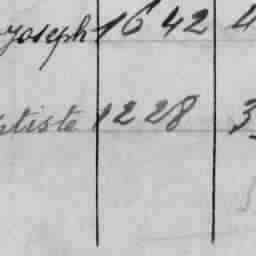 Joseph 16 42 4
ptiste 12 28 3